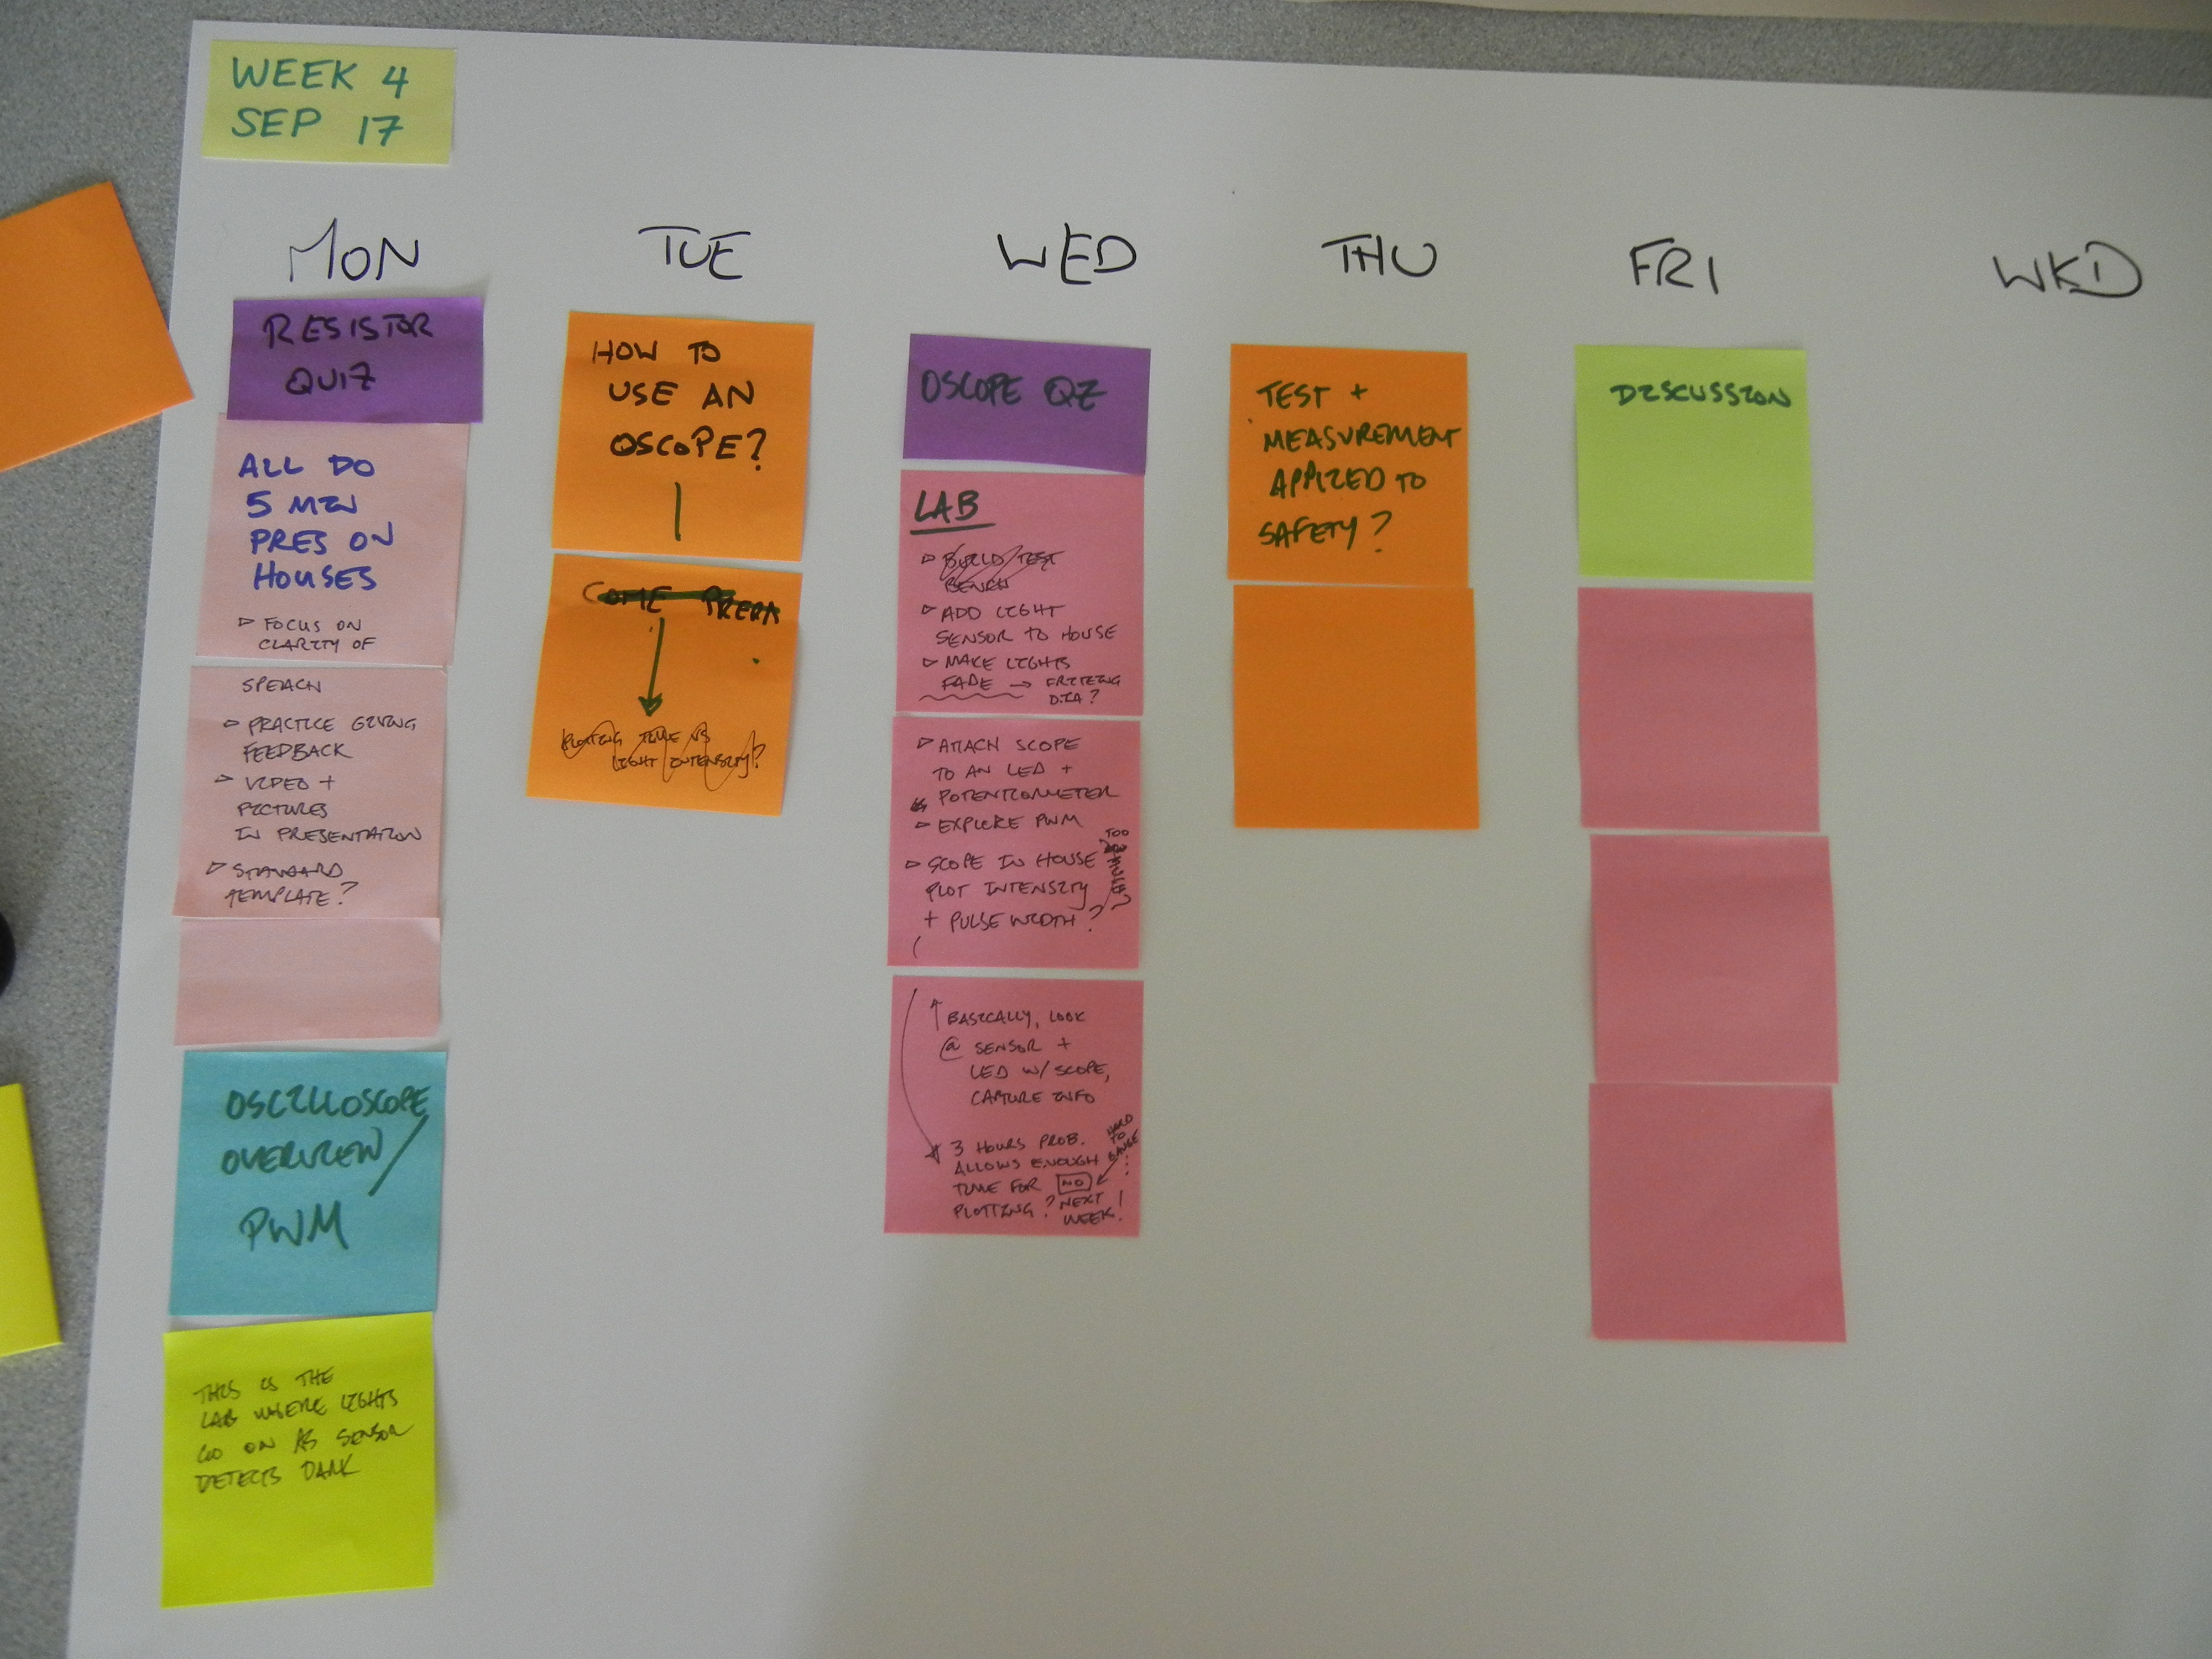 WEEK 4
SEP 17
MON
RESISTOR
QUIZ
ALL DO
5 MIN
PRES ON
HOUSES
▷ FOCUS ON
CLARITY OF
SPEACH
▷ PRACTICE GIVING
FEEDBACK
▷ VIDEO +
PICTURES
IN PRESENTATION
▷ STANDARD
TEMPLATE?
OSCILLOSCOPE
OVERVIEW/
PWM
THIS IS THE
LAB WHERE LIGHTS
GO ON AS SENSOR
DETECTS DARK
TUE
HOW TO
USE AN
OSCOPE?
COME PREPA
PLOTTING TIME VS
LIGHT INTENSITY?
WED
OSCOPE QZ
LAB
▷ BUILD TEST
BENCH
▷ ADD LIGHT
SENSOR TO HOUSE
▷ MAKE LIGHTS
FADE → FRITZING
DIA?
▷ ATTACH SCOPE
TO AN LED +
POTENTIOMETER
▷ EXPLORE PWM
▷ SCOPE IN HOUSE
PLOT INTENSITY
+ PULSE WIDTH?
TOO
MUCH?
↑ BASICALLY, LOOK
@ SENSOR +
LED W/ SCOPE,
CAPTURE INFO
3 HOURS PROB.
ALLOWS ENOUGH
TIME FOR
PLOTTING?
NO
NEXT
WEEK!
HARD
TO
GAUGE
THU
TEST +
MEASUREMENT
APPLIED TO
SAFETY?
FRI
DISCUSSION
WKD